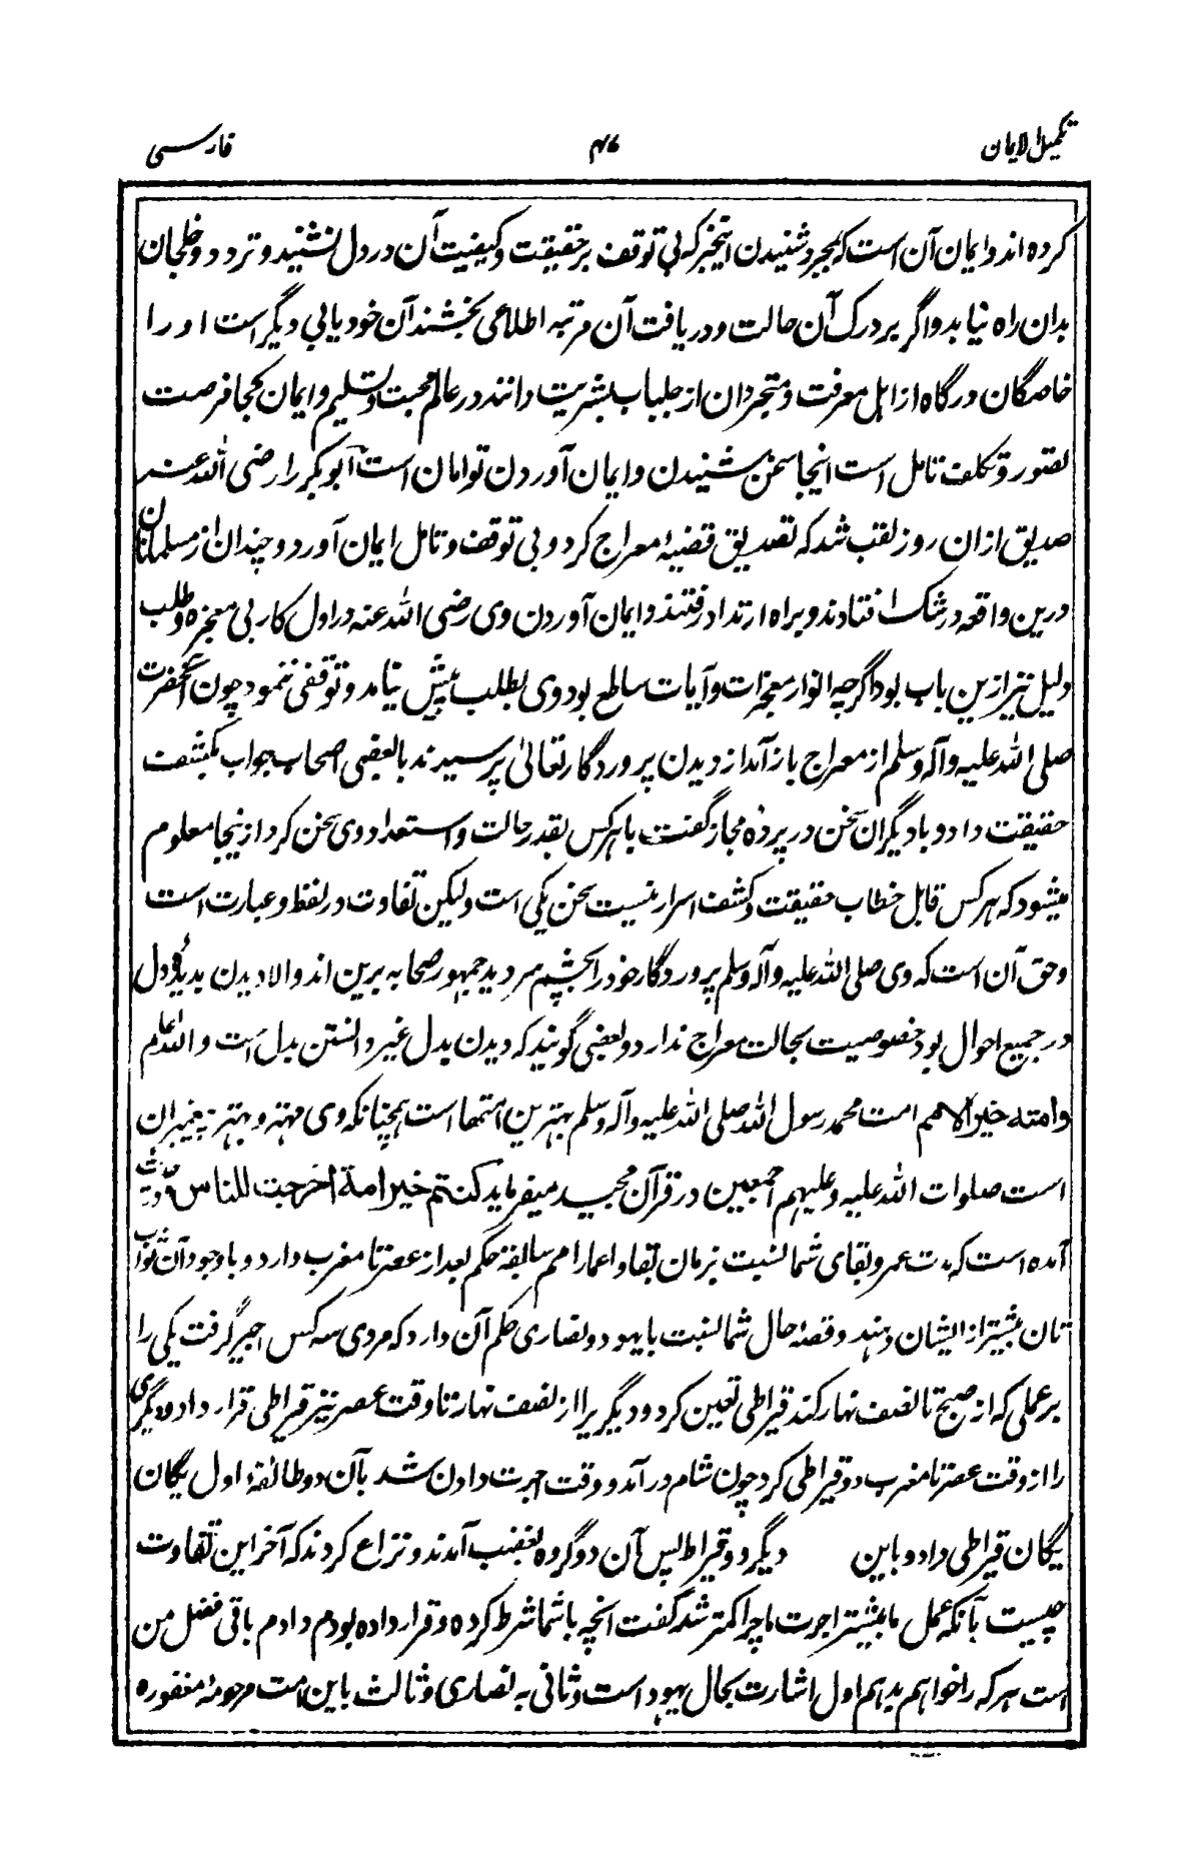 تکمیل الایمان ۴۷ فارسی
کرده اند و ایمان آن است که بمجرد شنیدن اینخبر که بی توقف بر حقیقت و کیفیت آن در دل نشیند و تردد و خلجان
بدان راه نیابد و اگر بر درک آن حالت و دریافت آن مرتبه اطلاعی بخشند آن خود یابی دیگر است او را
خاصگان درگاه از اهل معرفت و متجردان از جلباب بشریت دانند در عالم محبت و تسلیم و ایمان کجا فرصت
تصور و تکلف تامل است اینجا سخن شنیدن و ایمان آوردن توامان است ابوبکر را رضی الله عنه
صدیق ازان روز لقب شد که تصدیق قضیهٔ معراج کرد و بی توقف و تامل ایمان آورد و چندان از مسلمانان
درین واقعه در شک افتادند و براه ارتداد رفتند و ایمان آوردن وی رضی الله عنه در اول کار بی معجزه و طلب
دلیل نیز ازین باب بود اگرچه انوار معجزات و آیات ساطع بود وی بطلب پیش نیامد و توقفی ننمود چون آنحضرت
صلی الله علیه و آله و سلم از معراج باز آمد از دیدن پروردگار تعالیٰ پرسیدند با بعضی اصحاب جواب بکشف
حقیقت داد و با دیگران سخن در پردهٔ مجاز گفت با هر کس بقدر حالت و استعداد وی سخن کرد از ینجا معلوم
میشود که هر کس قابل خطاب حقیقت و کشف اسرار نیست سخن یکی است ولیکن تفاوت در لفظ و عبارت است
و حق آن است که وی صلی الله علیه و آله و سلم پروردگار خود را بچشم سر دید جمهور صحابه برین اند و الا دیدن بدیدهٔ دل
در جمیع احوال بود خصوصیت بحالت معراج ندارد و بعضی گویند که دیدن بدل غیر دانستن بدل است و الله اعلم
وامته خیر الامم امت محمد رسول الله صلی الله علیه و آله و سلم بهترین امتها است همچنانکه وی مهتر و بهتر پیغمبران
است صلوات الله علیه و علیهم اجمعین در قرآن مجید میفرماید کنتم خیر امة اخرجت للناس و در حدیث
آمده است که مدت عمر و بقای شما نسبت بزمان بقا و اعمار امم سالفه حکم بعد از عصر تا مغرب دارد و با وجود آن ثواب
تان بیشتر از ایشان دهند و قصهٔ حال شما نسبت با یهود و نصاری حکم آن دارد که مردی سه کس اجیر گرفت یکی را
بر عملی که از صبح تا نصف نهار کند قیراطی تعین کرد و دیگریرا از نصف نهار تا وقت عصر نیز قیراطی قرار داد و دیگری
را از وقت عصر تا مغرب دو قیراطی کرد چون شام در آمد و وقت اجرت دادن شد بآن دو طائفهٔ اول یگان
یگان قیراطی داد و باین دیگر دو قیراط پس آن دو گروه بغضب آمدند و نزاع کردند که آخر این تفاوت
چیست بآنکه عمل ما بیشتر اجرت ما چرا کمتر شد گفت آنچه با شما شرط کرده و قرار داده بودم دادم باقی فضل من
است هر که را خواهم بدهم اول اشارت بحال یهود است و ثانی به نصاری و ثالث باین امت مرحومهٔ مغفوره